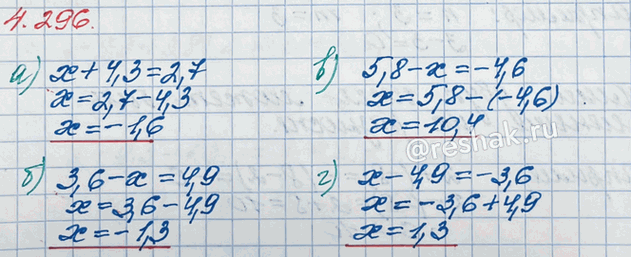 4.296.
а) x + 4,3 = 2,7
x = 2,7 - 4,3
x = -1,6
б) 3,6 - x = 4,9
x = 3,6 - 4,9
x = -1,3
в) 5,8 - x = -4,6
x = 5,8 - (-4,6)
x = 10,4
г) x - 4,9 = -3,6
x = -3,6 + 4,9
x = 1,3
@reshak.ru